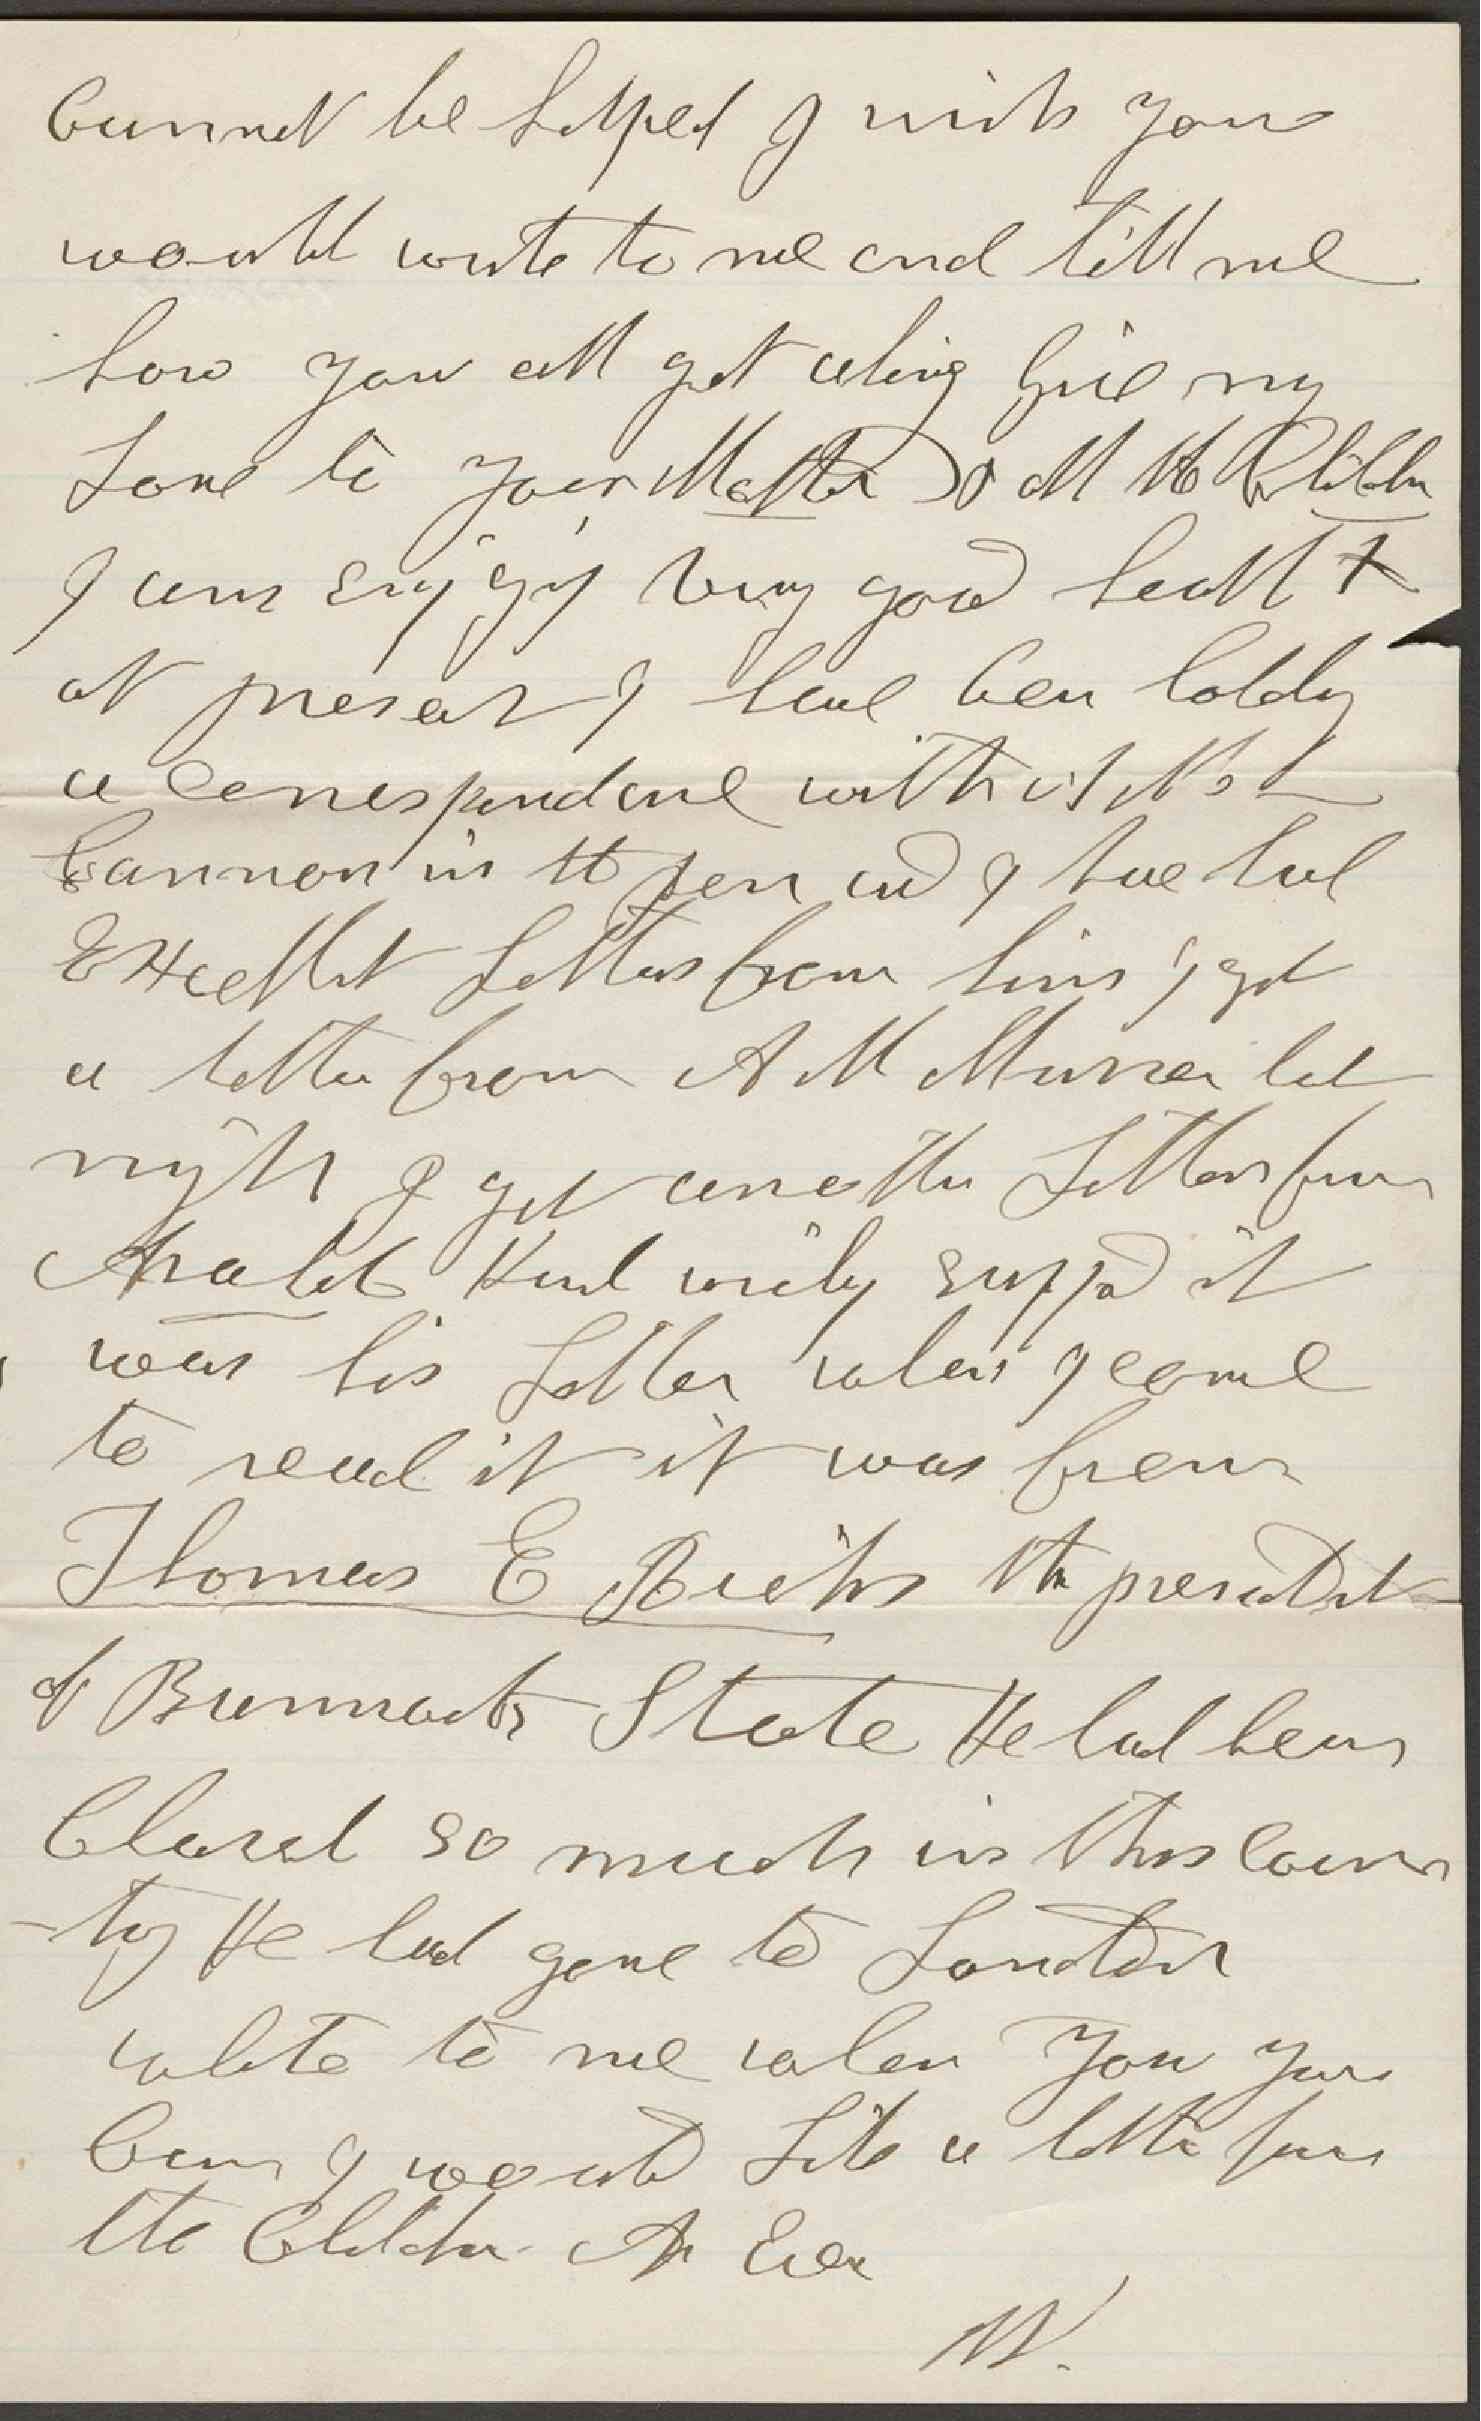 Cannot be helped I wish you
would write to me and tell me
how you all get along Give my
Love to your Mother & all the Children
I am enjoying very good health
at present I have been holding
a correspondence with
Cannon in the pen and I have had
Excellent Letters from him I got
a letter from A M Musser last
night I got another Letter from
widely suppd it
was his Letter when I come
to read it it was from
Thomas E Ricks the president
of Bannack State He had been
Chased so much in this coun
-try He had gone to London
write to me when you
can I would like a letter from
the Children As Ever
W.